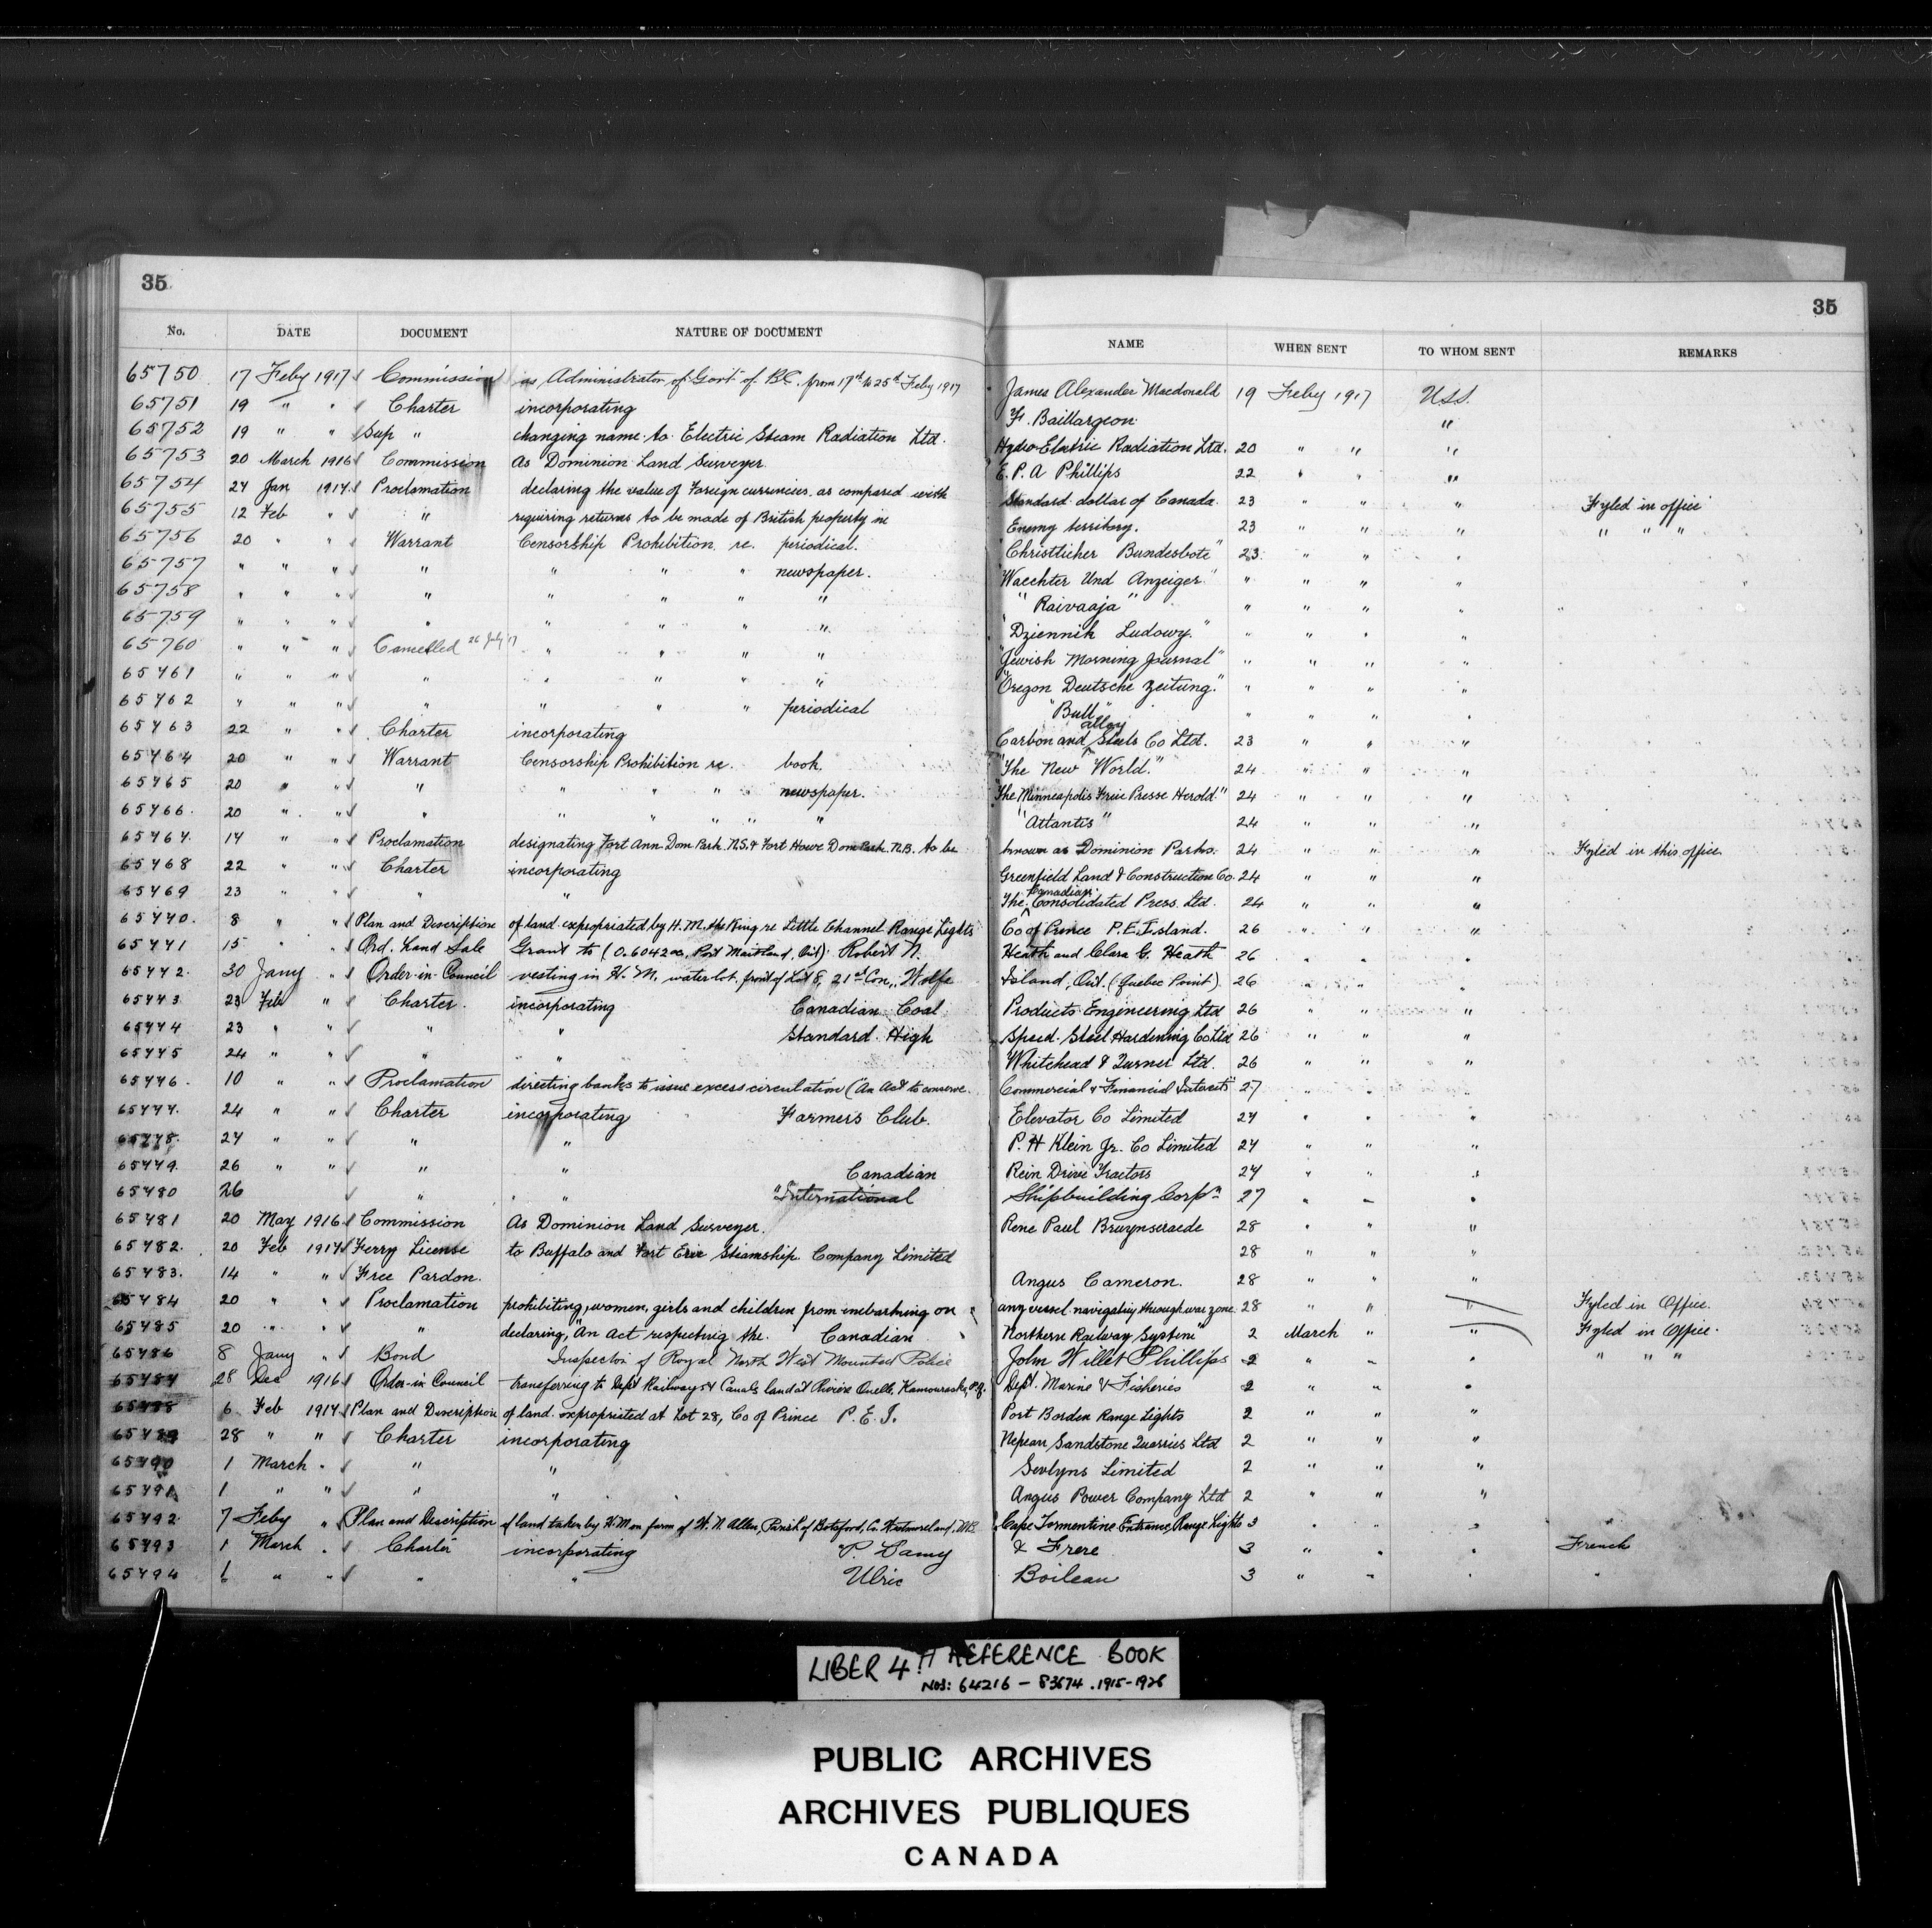 35
35
No. DATE DOCUMENT NATURE OF DOCUMENT NAME WHEN SENT TO WHOM SENT REMARKS
65750 17 Feby 1917 Commission as Administrator of Govt of B.C. from 17th to 25th Feby 1917 James Alexander Macdonald 19 Feby 1917 USS.
65751 19 " " Charter incorporating F. Baillargeon "
65752 19 " " Sup " changing name to Electric Steam Radiation Ltd. Hydro Electric Radiation Ltd. 20 " " "
65753 20 March 1916 Commission As Dominion Land Surveyor E. P. A Phillips 22 " " "
65754 24 Jan 1917 Proclamation declaring the value of Foreign currencies as compared with Standard dollar of Canada. 23 " " Fyled in office
65755 12 Feb " " requiring returns to be made of British property in Enemy territory. 23 " " " " " "
65756 20 " " Warrant Censorship Prohibition re. periodical. "Christlicher Bundesbote" 23 " " "
65757 " " " " " " " newspaper. "Waechter Und Anzeiger" " " " "
65758 " " " " " " " " "Raivaaja" " " " "
65759 " " " " " " " " "Dziennik Ludowy." " " " "
65760 " " " Cancelled 26 July 17 " " " " "Jewish Morning Journal" " " " "
65761 " " " " " " " " "Oregon Deutsche Zeitung." " " " "
65762 " " " " " " " periodical "Bull" " " " "
65763 22 " " Charter incorporating Carbon and alloy Steels Co Ltd. 23 " " "
65764 20 " " Warrant Censorship Prohibition re. book. "The New World." 24 " " "
65765 20 " " " " " " newspaper. "The Minneapolis Freie Presse Herold" 24 " " "
65766. 20 " " " " " " " " "Atlantis" 24 " " "
65767. 14 " " Proclamation designating Fort Ann Dom Park. N.S. & Fort Howe Dom Park. N.B. to be known as Dominion Parks. 24 " " " Fyled in this office
65768 22 " " Charter incorporating Greenfield Land & Construction Co. 24 " " "
65769 23 " " " " The Canadian Consolidated Press. Ltd. 24 " " "
65770. 8 " " Plan and Description of land expropriated by H.M. the King re Little Channel Range Lights Co of Prince P.E. Island. 26 " " "
65771 15 " " Ord. Land Sale Grant to (0.6042 ac, Port Maitland, Ont) Robert N. Heath and Clara G. Heath 26 " " "
65772. 30 Jany " Order-in-Council vesting in H.M. water lot. front of Lot 8, 21st Con., Wolfe Island, Ont. (Quebec Point) 26 " " "
65773 23 Feb " Charter. incorporating Canadian Coal Products Engineering Ltd 26 " " "
65774 23 " " " " Standard High Speed Steel Hardening Co Ltd 26 " " "
65775 24 " " " " Whitehead & Turner Ltd. 26 " " "
65776. 10 " " Proclamation directing banks to issue excess circulation ("An Act to conserve Commercial & Financial Interests" 27 " " "
65777. 24 " " Charter incorporating Farmer's Club. Elevator Co Limited 27 " " "
65778. 24 " " " " P. H Klein Jr. Co Limited 27 " " "
65779. 26 " " " " Canadian Rein Drive Tractors 27 " " "
65780 26 " " "International Shipbuilding Corpn 27 " " "
65781 20 May 1916 Commission As Dominion Land Surveyor. Rene Paul Bruynseraede 28 " " "
65782. 20 Feb 1917 Ferry License to Buffalo and Fort Erie Steamship Company Limited 28 " " "
65783. 14 " " Free Pardon. Angus Cameron. 28 " " "
65784 20 " " Proclamation prohibiting, women, girls and children from embarking on any vessel navigating through war zone. 28 " " " Fyled in Office.
65785 20 " " " declaring, "An Act respecting the Canadian Northern Railway System" 2 March " " Fyled in Office.
65786 8 Jany " Bond Inspector of Royal North West Mounted Police John Willet Phillips 2 " " " " " "
65787 28 Dec 1916 Order-in Council transferring to Dept Railways & Canals land at Riviere Ouelle, Kamouraska, P.Q. Dept. Marine & Fisheries 2 " " "
65788 6 Feb 1917 Plan and Description of land expropriated at Lot 28, Co of Prince P.E.I. Port Borden Range Lights 2 " " "
65789 28 " " Charter incorporating Nepean Sandstone Quarries Ltd 2 " " "
65790 1 March " " " Limited 2 " " "
65791 1 " " " " Angus Power Company Ltd 2 " " "
65792 7 Feby " Plan and Description of land taken by H.M on farm of H. N. Allen, Parish of Botsford, Co. Westmoreland, N.B. Cape Tormentine Entrance Range Lights 3 " " "
65793 1 March " Charter incorporating P. Damy & Frere 3 " " " French
65794 1 " " " " Ulric Boileau 3 " " " "
LIBER 4 REFERENCE BOOK
NOS: 64216 - 83674 . 1915-1926
PUBLIC ARCHIVES
ARCHIVES PUBLIQUES
CANADA